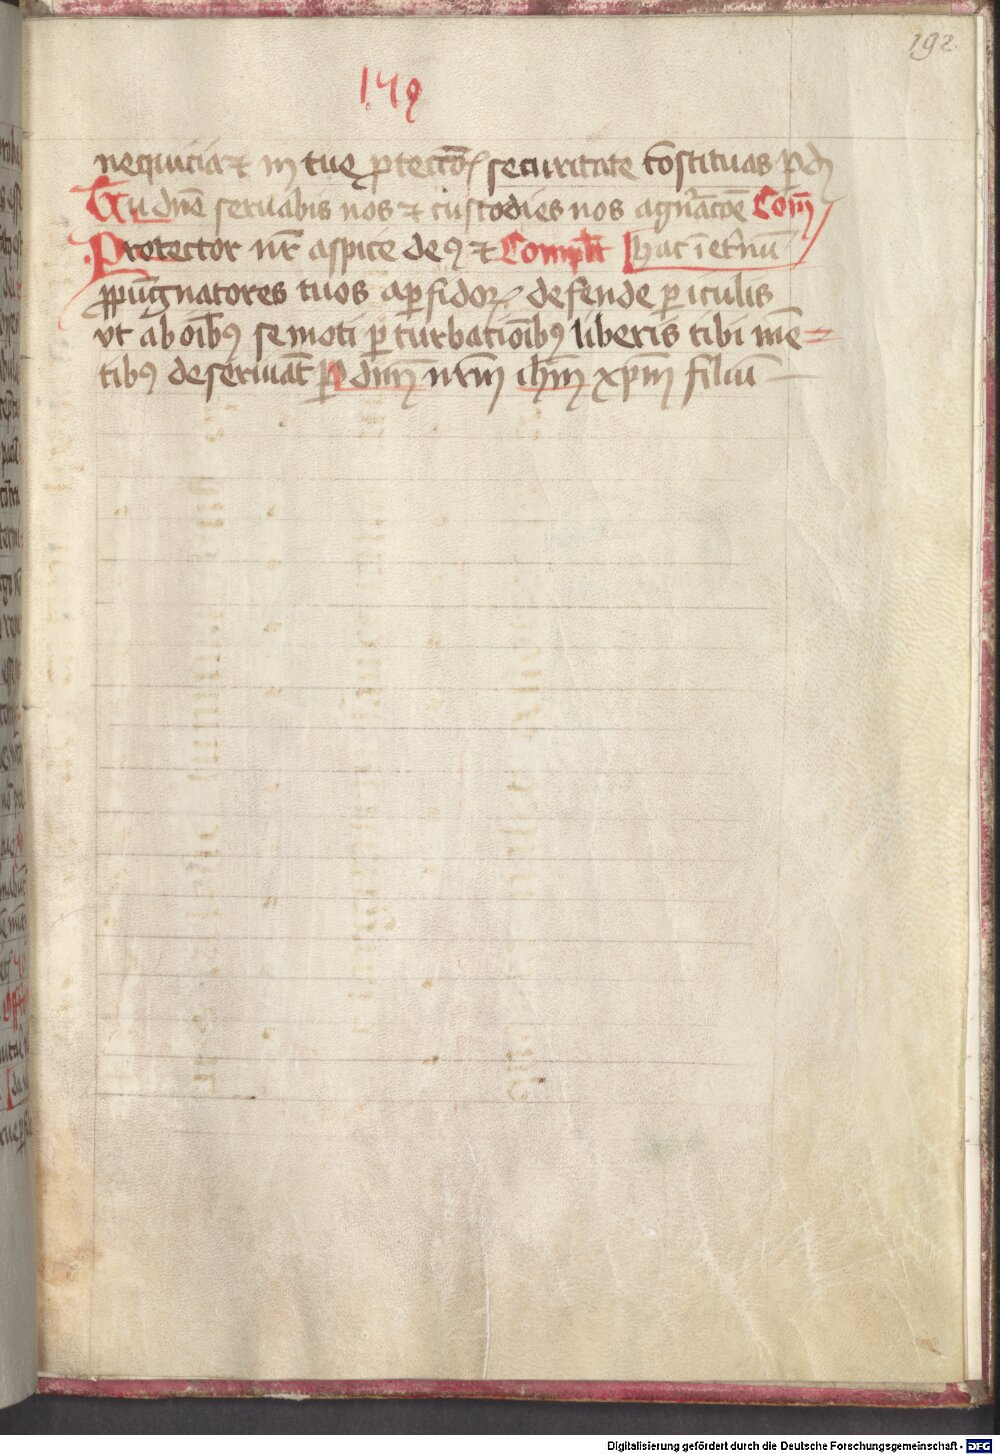 192
149
nequicia⁊ in tue ꝓtecto͞ꝛ securitate co͞stituas p d
Tu dn͞e seruabis nos ⁊ custodies nos a gn͞ac͞oe Com̄
Protector nr͞ aspice deꝰ ⁊ Compl͞t hac i͞ et͞nu͞
ꝓpugnatores tuos a ꝑfidoꝝ defende ꝑiculis
vt ab oi͞bꝰ semoti ꝑturbacio͞ibꝰ liberis tibi me͞=
tibꝰ deseruiat͞ P dn͞m nr͞m ih͞m xp͞m filiu͞
Digitalisierung gefördert durch die Deutsche Forschungsgemeinschaft - DFG